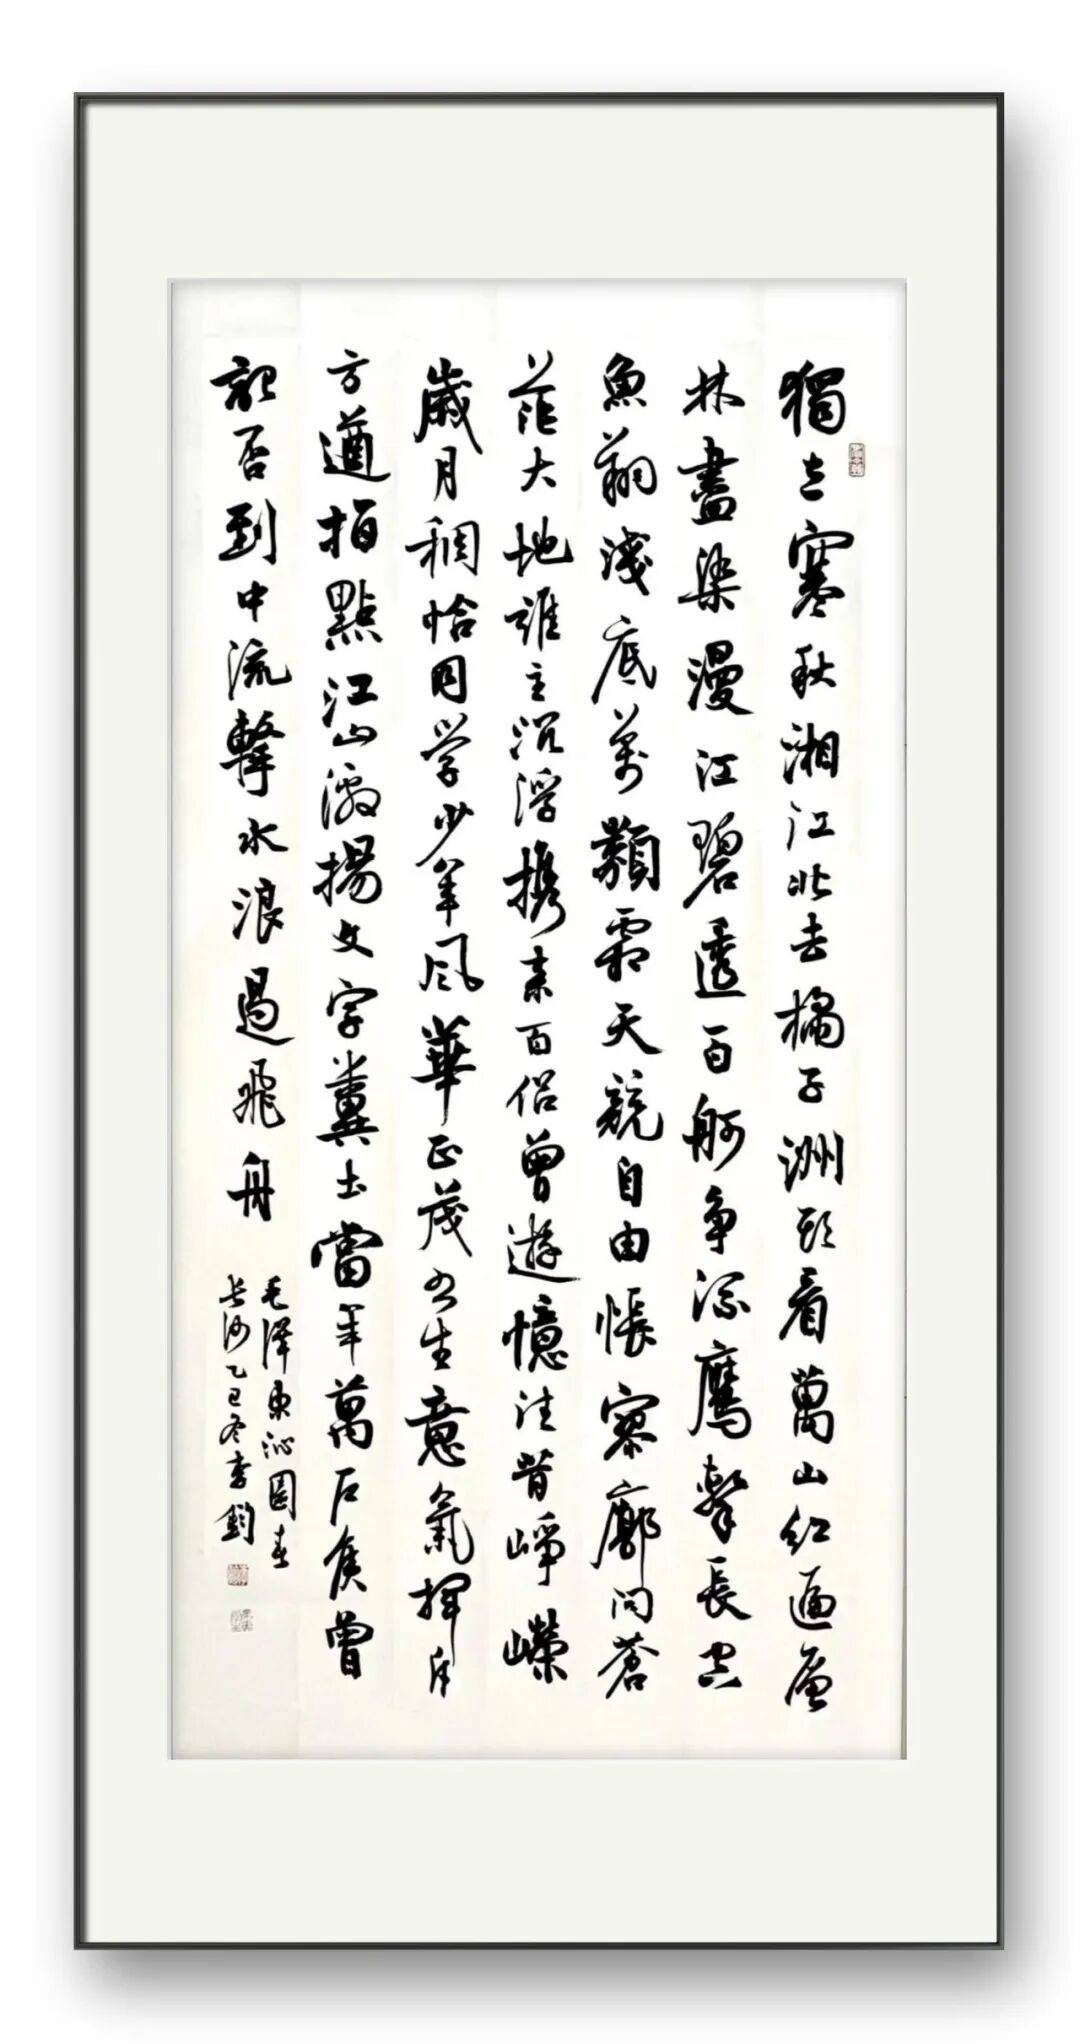 獨立寒秋湘江北去橘子洲頭看萬山紅遍層
林盡染漫江碧透百舸争流鹰擊長空
魚翔淺底萬類霜天競自由悵寥廓問蒼
茫大地誰主沉浮携來百侣曾遊憶往昔崢嶸
歲月稠恰同学少年風華正茂书生意氣揮斥
方遒指點江山激揚文字糞土當年萬户侯曾
記否到中流擊水浪遏飛舟
毛澤東沁園春
長沙乙巳冬李鈞